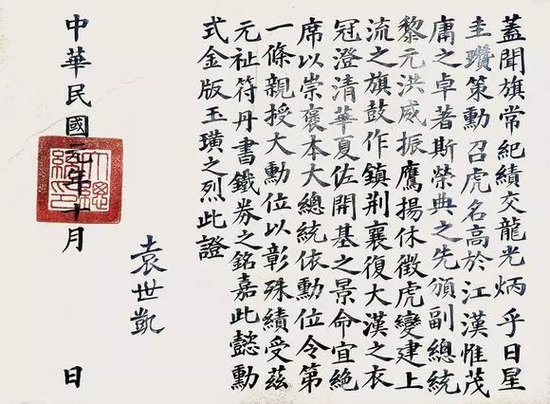 蓋聞旗常紀績交龍光炳乎日星
圭瓚策勳召虎名高於江漢惟茂
庸之卓著斯榮典之先頒副總統
黎元洪威振鷹揚休徵虎變建上
流之旗鼓作鎮荊襄復大漢之衣
冠澄清華夏佐開基之景命宜絶
席以崇褒本大總統依勳位令第
一條親授大勳位以彰殊績受茲
元祉符丹書鐵券之銘嘉此懿勳
式金版玉璜之烈此證
袁世凱
中華民國年十月日
大總統印